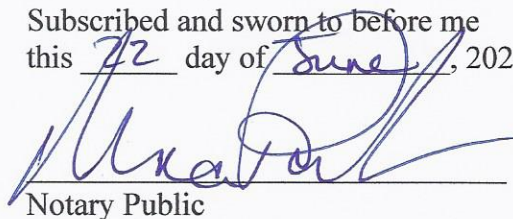 Subscribed and sworn to before me
this 22 day of June, 202
Notary Public